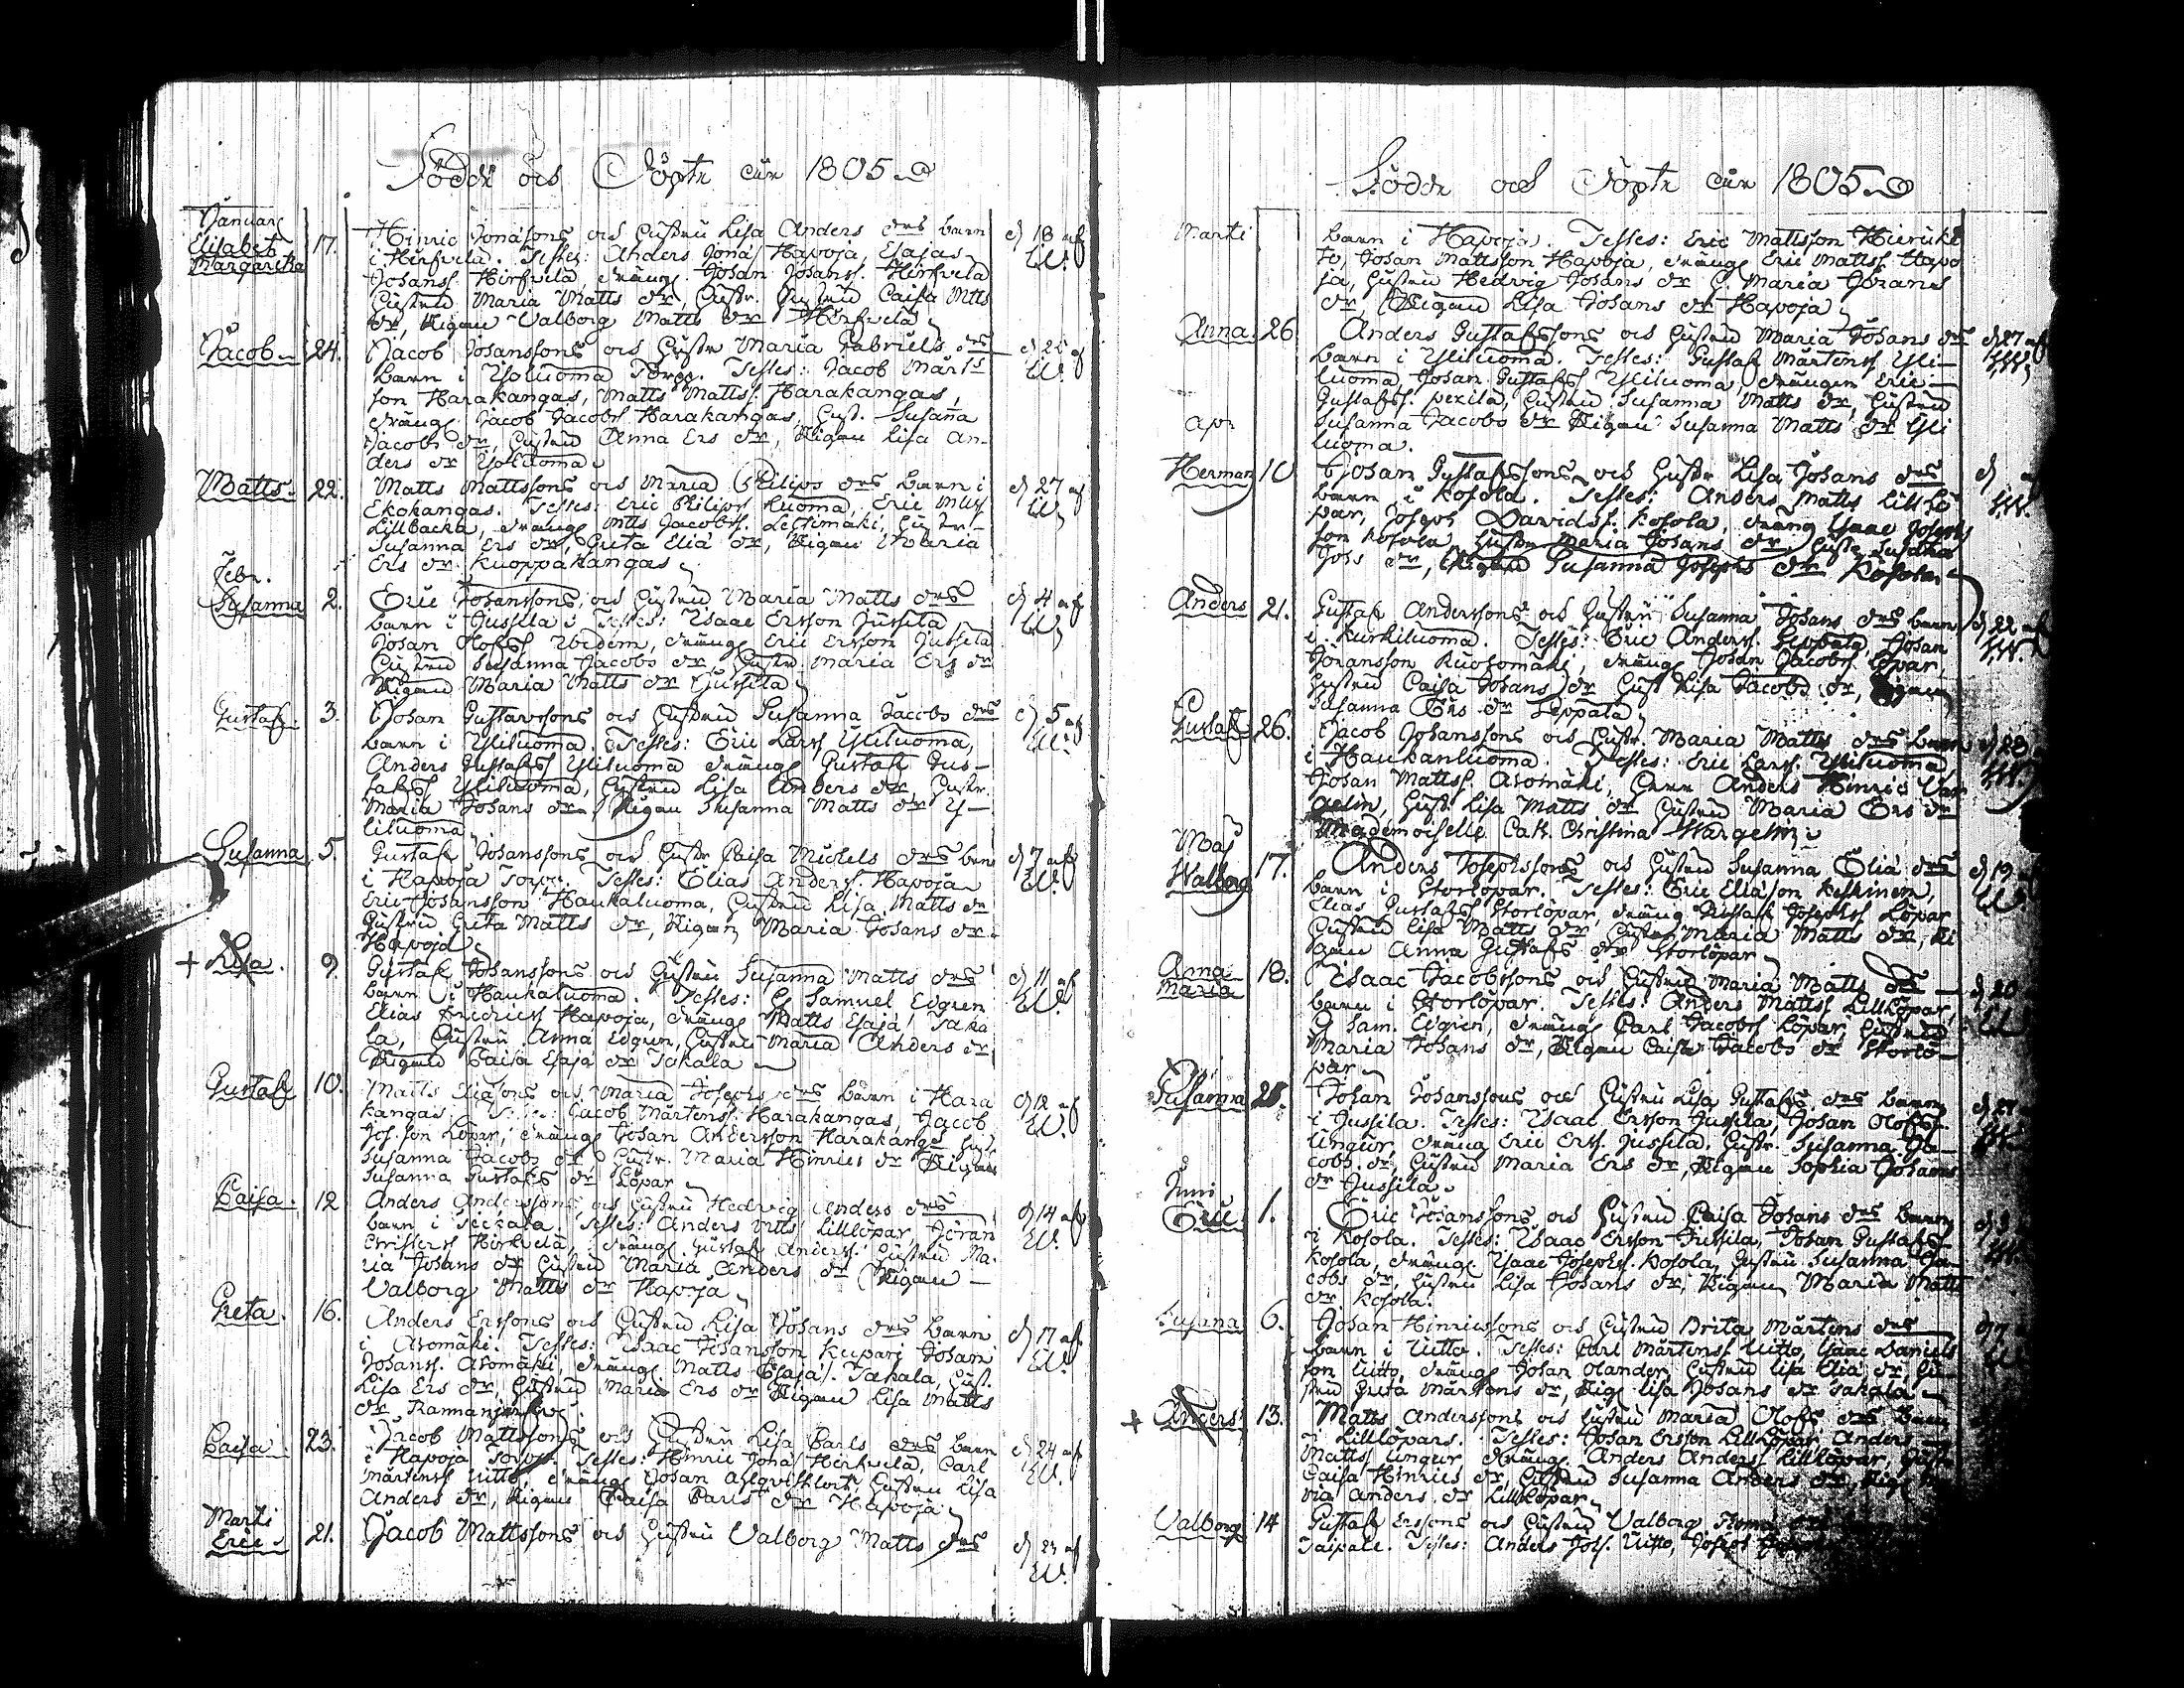 Födde och Döpte åhr 1805
Januari
Elisabet Margareta 17. Hinric Jonæsons och hustru Lisa Anders drs barn d 18 af
i Hirfvelä. Testes: Anders Jonæs Hapoja, Esajas W.
Johanss. Hirfvelä, dräng Johan Johanss. Hirfvelä
hustrun Maria Matts dr, hustr. Caisa Mtts
dr, Pigan Valborg Matts dr Hirfvelä
Jacob 24. Jacob Johanssons och hustr Maria Gabriels drs d 25 af
barn i Yliluoma Torp. Testes: Jacob Märts W.
son Harakangas, Matts Matts. Harakangas,
dräng Jacob Jacobs Harakangas, hust. Susana
Jacobs dr, hustrun Anna Ers dr, Pigan Lisa An-
ders dr Yliluoma
Matts 22. Matts Mattssons och Maria Philips drs barn i d 27 af
Ekokangas. Testes: Eric Philips Luoma, Eric W
Lillbacka, dräng Mtts Jacobss. Lehtimäki, hustr
Susanna Ers dr, Greta Eliæ dr, Pigan Maria
Ers dr Kuoppakangas
Febr.
Susanna 2. Eric Johanssons och hustrun Maria Matts drs d 4 af
barn i Jussila. Testes: Isaac Ersson Jussila W
Johan Olofss Ibidem, dräng Eric Ersson Jussila
hustrun Susanna Jacobs dr, hustr. Maria Ers dr
Pigan Maria Matts dr Jussila
Gustaf 3. Johan Gustavssons och hustrun Susanna Jacobs drs d 5 af
barn i Yliluoma. Testes: Eric Larss Yliluoma, W.
Anders Gustafss Yliluoma dräng Gustaf Gus-
tafss Yliluoma, hustrun Lisa Anders dr, hustr.
Maria Johans dr, Pigan Susanna Matts dr Y-
liluoma
Susanna 5. Gustaf Johanssons och hustr Caisa Michels drs barn d 7 af
i Hapoja Torp. Testes: Elias Anderss. Hapoja W.
Eric Johansson Haukaluoma, hustrun Lisa Matts dr
hustrun Greta Matts dr, Pigan Maria Johans dr
Hapoja
+ Lisa. 9. Gustaf Johanssons och hustrun Susanna Matts drs d 11 af
barn i Haukaluoma. Testes: Samuel Edgren W.
Elias Fridricss Hapoja, dräng Matts Esajæ Taka
la, hustrun Anna Edgren, hustru Maria Anders dr
Pigan Caisa Esajæ dr Takala
Gustaf 10. Matts Eliæsons och Maria Josephs drs barn i Hara d 12 af
kangas. Testes: Jacob Märtenss Harakangas, Jacob W.
Jos.son Löpar, dräng Johan Andersson Harakangs hust
Susanna Jacobs dr hustr. Maria Hinrics dr Pigan
Susanna Gustafs dr Löpar
Caisa. 12 Anders Anderssons och hustrun Hedvig Anders drs d 14 af
barn i Teckala. Testes: Anders Mtts Lillöpar, Jöran W.
Christerss Hirfvelä, dräng Gustaf Anderss. hustrun Ma-
ria Johans dr hustrun Maria Anders dr Pigan
Valborg Matts dr Hapoja
Greta. 16. Anders Erssons och hustrun Lisa Johans drs barn d 17 af
i Aromäki. Testes: Isaac Johansson Keipari Johan W.
Johanss. Aromäki, dräng Matts Esajæs. Takala, hust.
Lisa Ers dr, hustrun Maria Ers dr Pigan Lisa Matts
dr
Caisa. 23. Jacob Mattssons och hustrun Lisa Carls drs barn d 24 af
i Hapoja Torp. Testes: Hinric Jonæs Hirfvelä, Carl W.
Märtenss Uitto, dräng Johan, hustru Lisa
Anders dr, Pigan Caisa Carls dr Hapoja
Marti
Eric 21. Jacob Mattssons och hustrun Valborg Matts drs d 23 af
W.
Födde och Döpte åhr 1805
Marti barn i Hapoja. Testes: Eric Mattsson
Johan Mattsson Hapoja, dräng Eric Matts. Hapo
ja, hustrun Hedvig Johans dr Maria Jörans
dr, Pigan Lisa Johans dr Hapoja
Anna 26 Anders Gustafssons och hustrun Maria Johans drs d 27 af
barn i Yliluoma. Testes: Gustaf Märtenss Yli- W
luoma Johan Gustafss Yliluoma, drängen Eric
Gustafss. Perila, hustrun Susanna Matts dr, hustrun
Apr Susanna Jacobs dr Pigan Susanna Matts dr Yli
luoma.
Herman 10 Johan Gustafssons och hustr Lisa Johans drs d
barn i Kosola. Testes: Anders Matts Lill Lö W.
par, Joseph Davidss. Kosola, dräng Isaac Josephs
son Kosola, hustr Maria Johans dr, hustr Susana
Johs dr, Pigan Susanna Josephs dr Kosola
Anders 21. Gustaf Anderssons och hustrun Susanna Johans drs barn d 22 af
i Kurkiluoma. Testes: Eric Anderss. Seppälä, Johan W.
Jöransson Ruohomäki, dräng Johan Jacobss Löpar,
hustrun Caisa Johans dr hust Lisa Jacobs dr, Pigan
Susanna Ers dr Seppälä
Gustaf 26. Jacob Johanssons och hustr. Maria Matts drs barn d 28
i Haukanluoma. Testes: Eric Larss. Yliluoma, W
Johan Mattss. Aromäki, Herr Anders Hinric War
gelin, hustr Lisa Matts dr hustrun Maria Ers dr
Mademoiselle Cath. Christina Wargelin
Maj
Walborg 17. Anders Josephssons och hustrun Susanna Eliæ drs d 19
barn i Storlöpar. Testes: Eric Eliæson Keskinen, W.
Elias Gustafss Storlöpar, dräng Gustaf Josephss Löpar
hustrun Lisa Matts dr hustrun Maria Matts dr, Pi
gan Anna Gustafs dr Storlöpar
Anna Maria 18. Isaac Jacobssons och hustrun Maria Matts drs d 20
barn i Storlöpar. Testes: Anders Matts Lilllöpar, W
Sam. Edgren, dräng Carl Jacobss Löpar, hustrun
Maria Johans dr, Pigan Caisa Jacobs dr Storlö-
par
Susanna 25. Johan Johanssons och hustrun Lisa Gustafs drs barn d 27
i Jussila. Testes: Isaac Ersson Jussila, Johan Olofss
Ungur, dräng Eric Erss. Jussila. hustr. Susanna Ja-
cobs dr, hustrun Maria Ers dr, Pigan Sophia Johans
dr Jussila.
Juni
Eric 1. Eric Johanssons och hustrun Caisa Johans drs barn d 3
i Kosola. Testes: Isaac Ersson Jussila, Johan Gustafss
Kosola, dräng Isaac Josephs. Kosola, hustrun Susanna Ja-
cobs dr, hustrun Lisa Johans dr, Pigan Maria Matts
dr Kosola.
Susana 6. Johan Hinricssons och hustrun Brita Märtens drs
barn i Uitto. Testes: Carl Märtenss Uitto, Isaac Daniels
son Uitto, dräng Johan Olander, hustrun Lisa Eliæ dr hu-
strun Greta Märtens dr, Pig. Lisa Johans dr Takala
+ Anders 13. Matts Anderssons och hustrun Maria Olofs drs barn
i Lilllöpars. Testes: Johan Ersson Lilllöpar Anders
Matts Ungur, dräng Anders Anderss Lilllöpar,
Caisa Hinrics dr, hustrun Susanna Anders dr,
ria Anders dr Lilllöpar
Valborg 14 Gustaf Erssons och hustrun Valborg
Taipale. Testes: Anders Johs. Uitto, Joseph